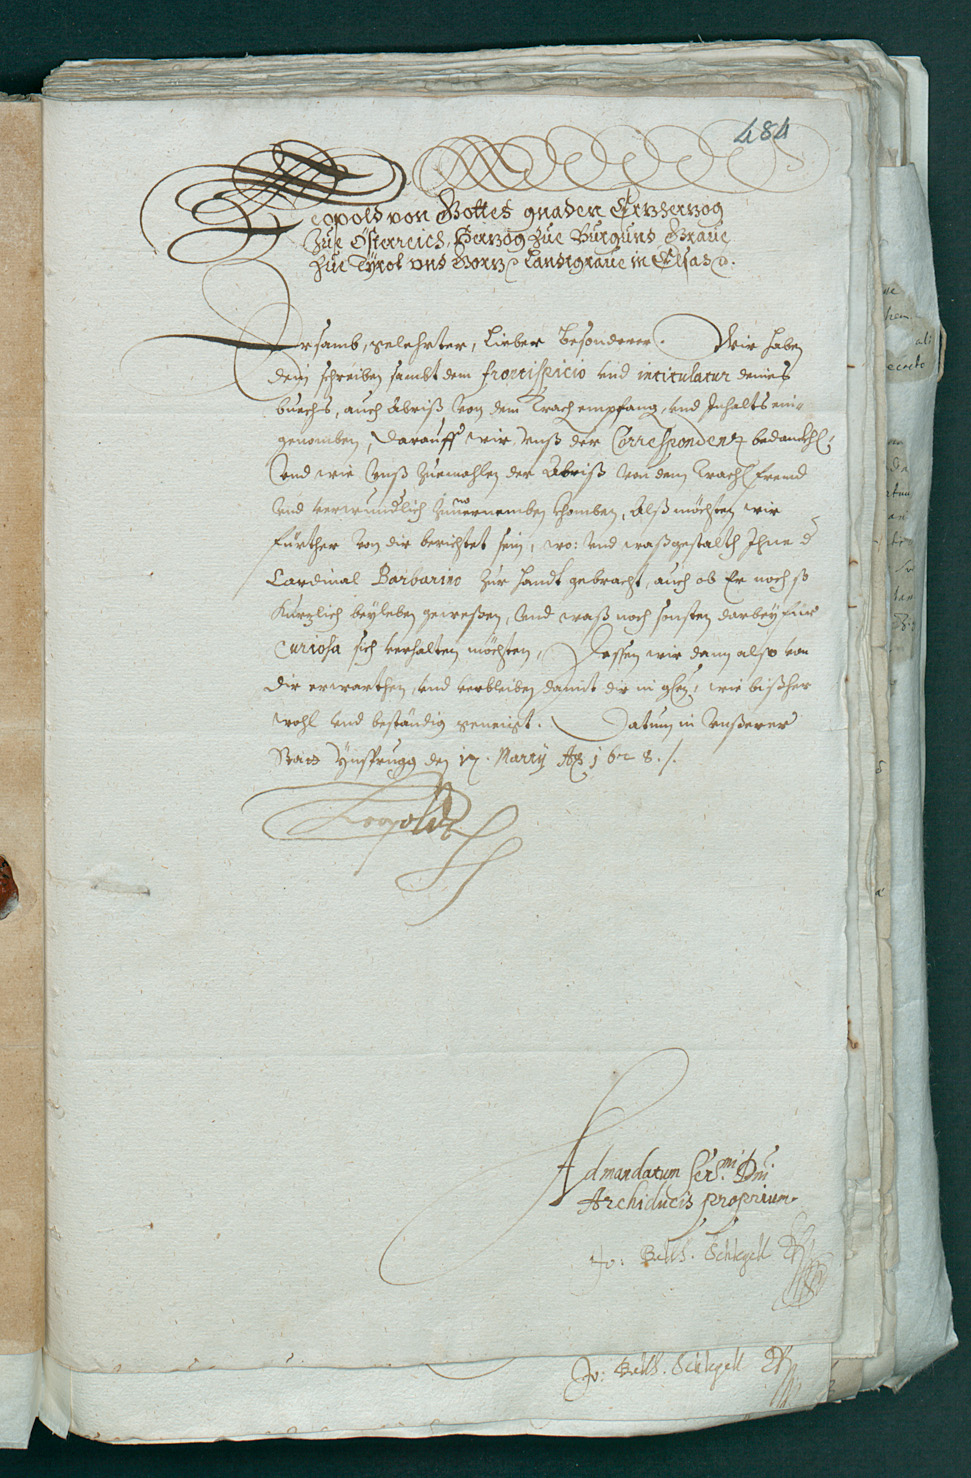 484
Leopold von Gottes gnaden Ertzhertzog
Zue Österreich, Hertzog zue Burgund Graue
Zue Tyrol vnd Görtz Landtgraue in Elsas.
Ersamb, gelehrter, Lieber Besonderer. Wir haben
dein schreiben sambt dem frontispicio vnd intitulatur deines
buechs, auch Abriß von dem Trach empfang, vnd Inhalts ein=
genomben, Darauff wir vnß der Correspondenz bedanckhl:
Vnd wie vnß zuemahlen der Abriß von dem Trachl frembd
vnd verwundlich zuuernemben khomben, Alß möchten wir
fürther von dir berichtet sein, wo: vnd waßgestalth Ihne d
Cardinal Barbarino zur handt gebracht, auch ob Er noch so
kürzlich beyleben gewesen, vnd waß noch sonsten darbey für
Curiosa sich verhalten möchten, Dessen wir dann also von
dir erwarthen, vnd verbleiben damit dir in gn, wie bißher
wohl vnd beständig geneigt. Datum in vnserer
Statt Ynsprugg den 17. Marty Ao 1628 ./.
Leopold
Ad mandatum Serᵐⁱ Dni
Archiducis proprium.
Jo: Balth. Schlegell
Jo: Balth. Schlegell